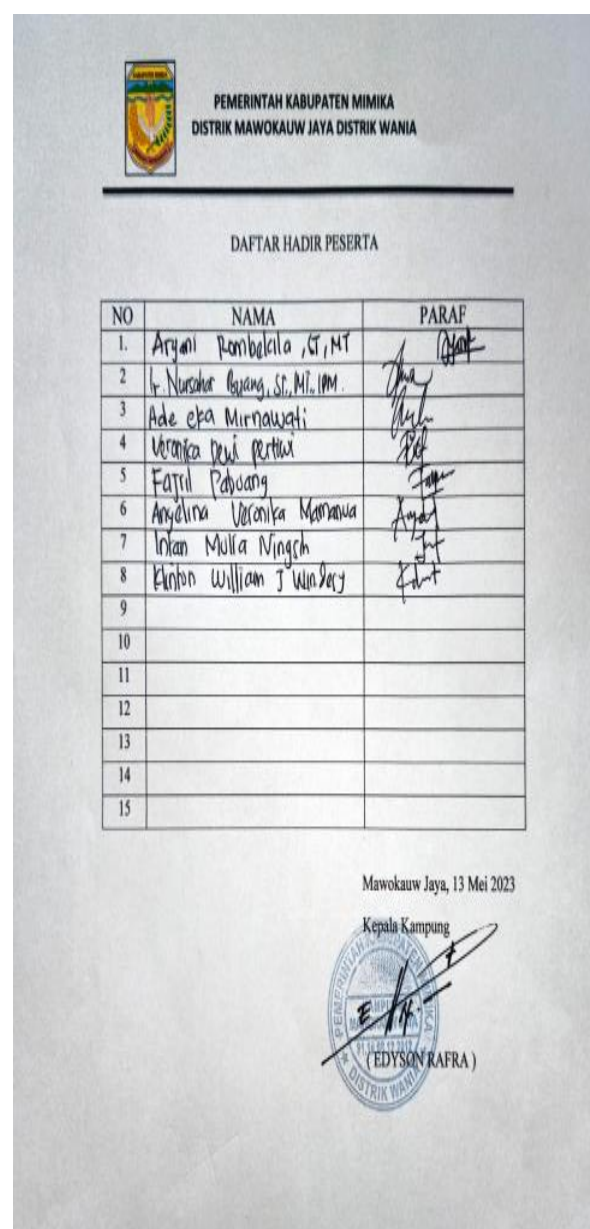 KABUPATEN MIMIKA
PEMERINTAH KABUPATEN MIMIKA
DISTRIK MAWOKAUW JAYA DISTRIK WANIA
DAFTAR HADIR PESERTA
NO NAMA PARAF
1. Aryani Rombekila, ST, MT
2 Ir. Nursahar Buang, ST., MT., IPM.
3 Ade eka Mirnawati
4 Veronika Dewi pertiwi
5 Fajril Pabuang
6 Angelina Veronika Mamanua
7 Intan Mulia Ningsih
8 Klinton William J
9
10
11
12
13
14
15
Mawokauw Jaya, 13 Mei 2023
Kepala Kampung
PEMERINTAH KABUPATEN MIMIKA
DISTRIK WANIA
( EDYSON RAFRA )